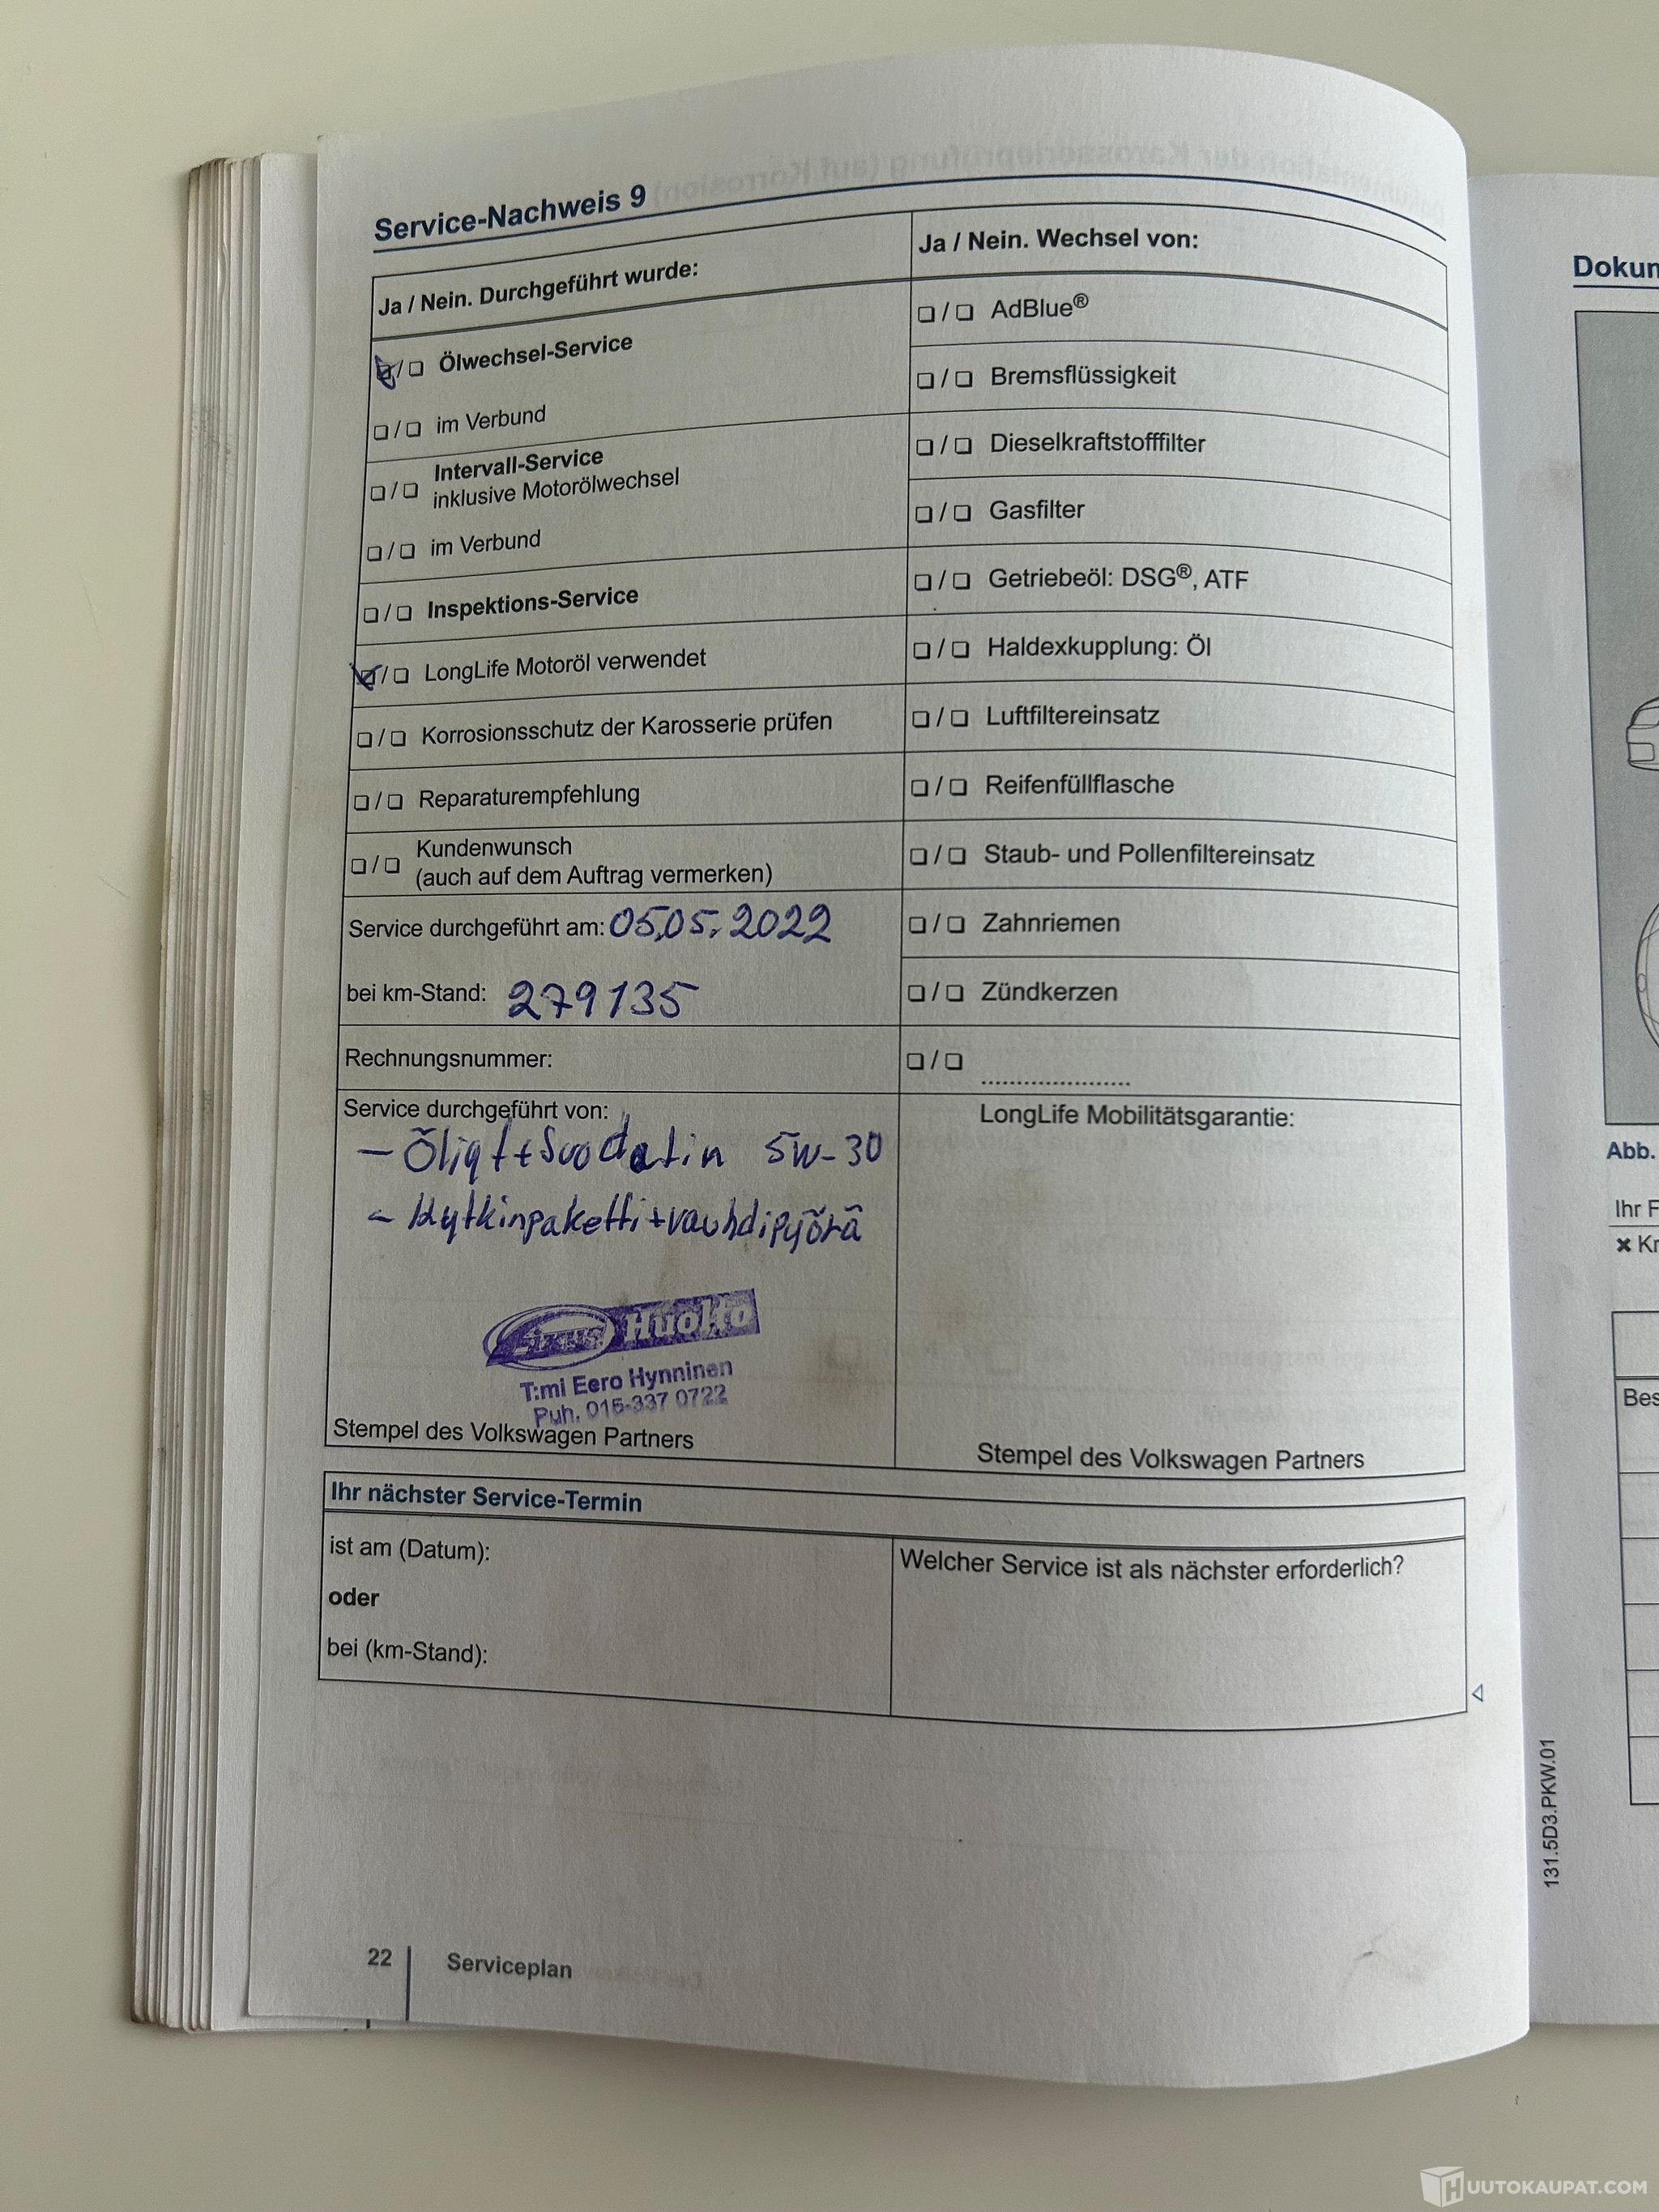 Service-Nachweis 9
Ja / Nein. Durchgeführt wurde:
❏ / ❏ Ölwechsel-Service
❏ / ❏ im Verbund
❏ / ❏ Intervall-Service
inklusive Motorölwechsel
❏ / ❏ im Verbund
❏ / ❏ Inspektions-Service
❏ / ❏ LongLife Motoröl verwendet
❏ / ❏ Korrosionsschutz der Karosserie prüfen
❏ / ❏ Reparaturempfehlung
❏ / ❏ Kundenwunsch
(auch auf dem Auftrag vermerken)
Service durchgeführt am: 05.05.2022
bei km-Stand: 279135
Rechnungsnummer:
Service durchgeführt von:
- Öljyt+Suodatin 5W-30
- Kytkinpaketti+vauhdipyörä
Huolto
T:mi Eero Hynninen
Puh. 015-337 0722
Stempel des Volkswagen Partners
Ja / Nein. Wechsel von:
❏ / ❏ AdBlue®
❏ / ❏ Bremsflüssigkeit
❏ / ❏ Dieselkraftstofffilter
❏ / ❏ Gasfilter
❏ / ❏ Getriebeöl: DSG®, ATF
❏ / ❏ Haldexkupplung: Öl
❏ / ❏ Luftfiltereinsatz
❏ / ❏ Reifenfüllflasche
❏ / ❏ Staub- und Pollenfiltereinsatz
❏ / ❏ Zahnriemen
❏ / ❏ Zündkerzen
❏ / ❏ ......................
LongLife Mobilitätsgarantie:
Stempel des Volkswagen Partners
Ihr nächster Service-Termin
ist am (Datum):
oder
bei (km-Stand):
Welcher Service ist als nächster erforderlich?
22 Serviceplan
131.5D3.PKW.01
Dokum
Abb.
Ihr F
× Kr
Bes
HUUTOKAUPAT.COM